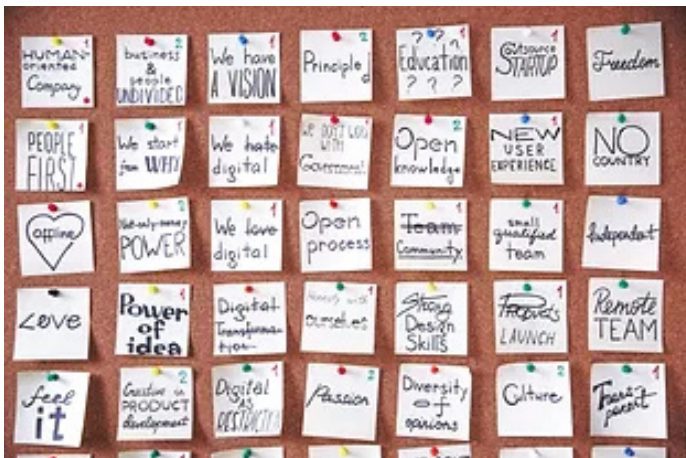 HUMAN-
oriented
Company
1
business
&
people
UNDIVIDED
2
We have
A VISION
1
Principles
2
? ? ?
Education
? ? ?
1
Outsource
STARTUP
1
Freedom
PEOPLE
FIRST.
1
We start
from WHY
We hate
digital
1
WE DON'T WORK
WITH
Government
1
Open
knowledge
2
NEW
USER
EXPERIENCE
1
NO
COUNTRY
offline
Not-only-money
POWER
2
We love
digital
1
Open
process
1
Team
Community
1
small
qualified
team
1
Independent
Love
Power
of
idea
1
Digital
Transforma-
tion
1
Honesty with
ourselves
1
Strong
Design
Skills
Products
LAUNCH
1
Remote
TEAM
feel
it
Creative in
PRODUCT
development
2
Digital
AS
1
Passion
2
Diversity
of
opinions
Culture
2
Trans-
parent
1